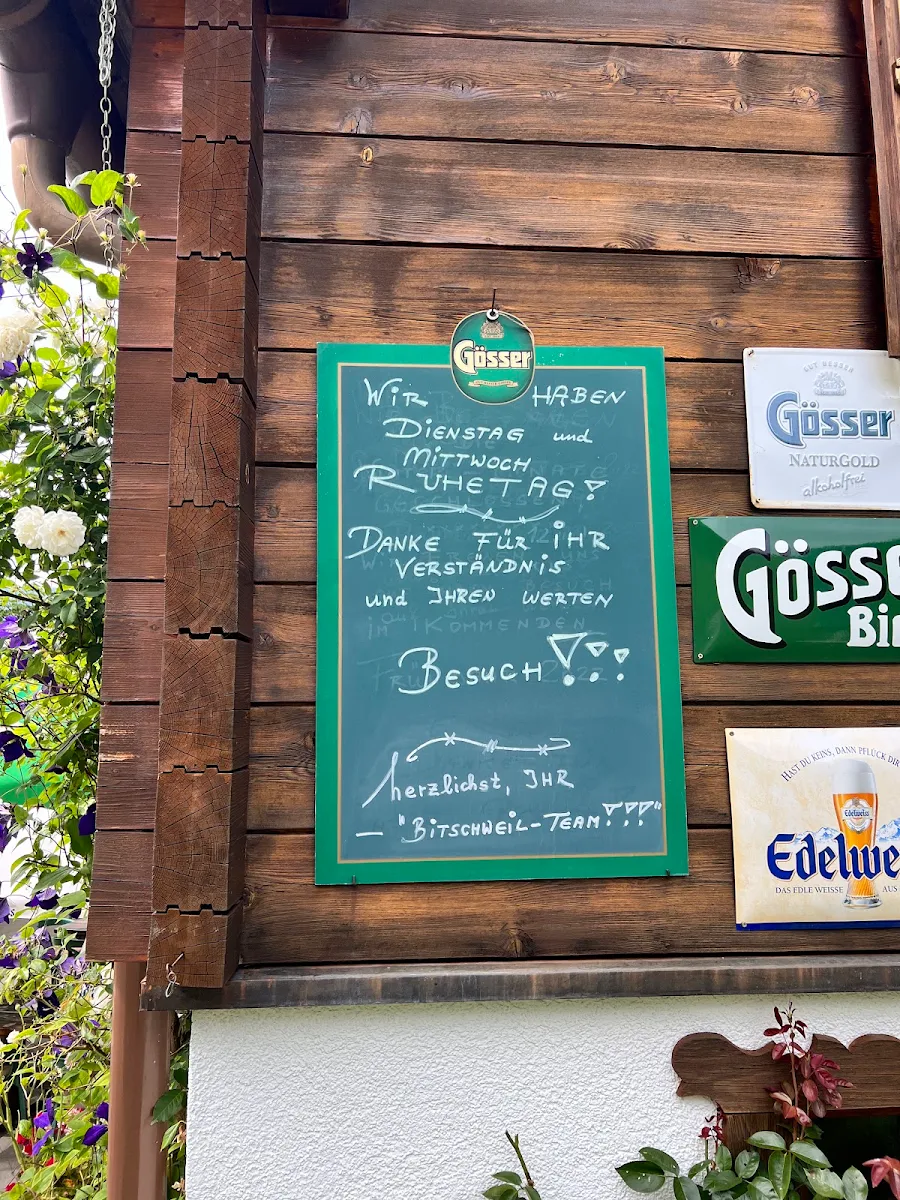 Gösser
WIR HABEN
DIENSTAG und
MITTWOCH
RUHETAG!
DANKE FÜR IHR
VERSTÄNDNIS
und IHREN WERTEN
BESUCH!!!
herzlichst, IHR
– "BITSCHWEIL-TEAM!!!"
GUT BESSER
Gösser
NATURGOLD
alkoholfrei
Gösse
Bi
HAST DU KEINS, DANN PFLÜCK DIR
Edelweiss
Edelwe
DAS EDLE WEISSE AUS